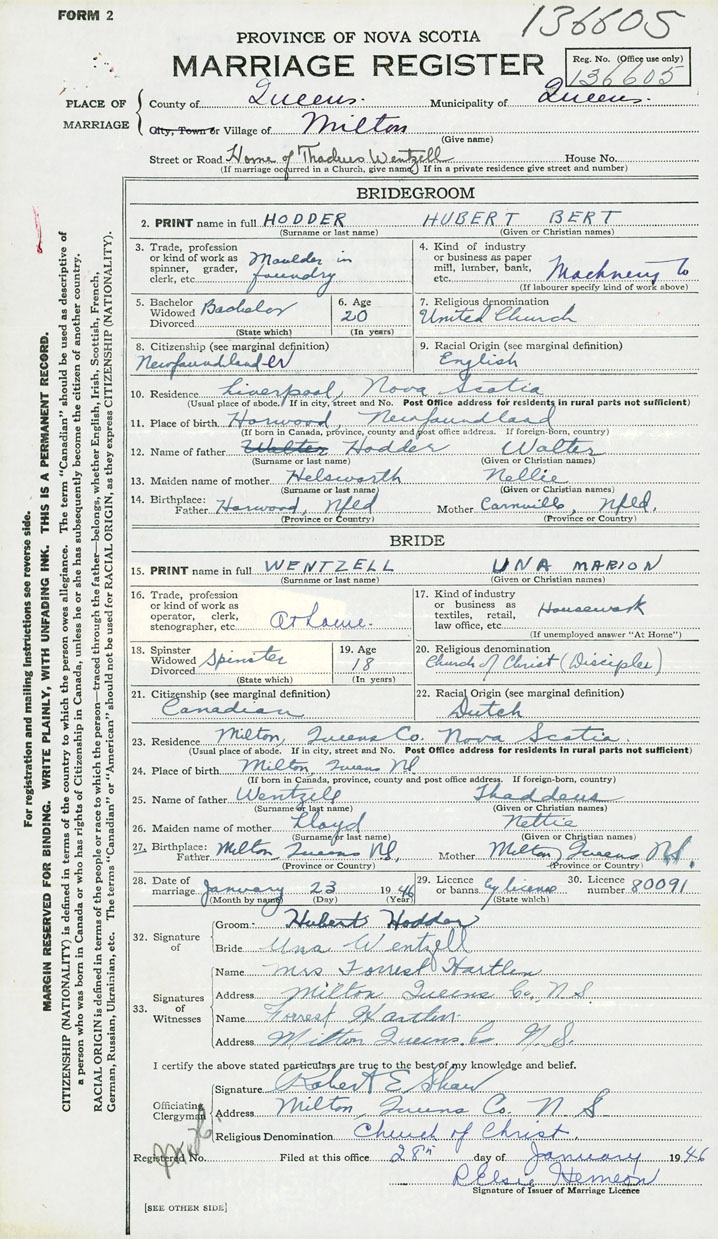 FORM 2
136605
PROVINCE OF NOVA SCOTIA
MARRIAGE REGISTER
Reg. No. (Office use only)
136605
PLACE OF MARRIAGE
County of Queens. Municipality of Queens.
City, Town or Village of Milton
(Give name)
Street or Road Home of Thadues Wentzell House No.
(If marriage occurred in a Church, give name) If in a private residence give street and number)
BRIDEGROOM
2. PRINT name in full HODDER HUBERT BERT
(Surname or last name) (Given or Christian names)
3. Trade, profession or kind of work as spinner, grader, clerk, etc. Moulder in foundry
4. Kind of industry or business as paper mill, lumber, bank, etc. Machnery Co
(If labourer specify kind of work above)
5. Bachelor Widowed Divorced Bachelor
(State which)
6. Age 20
(In years)
7. Religious denomination
United Church
8. Citizenship (see marginal definition)
Newfoundlander
9. Racial Origin (see marginal definition)
English
10. Residence Liverpool, Nova Scotia
(Usual place of abode. If in city, street and No. Post Office address for residents in rural parts not sufficient)
11. Place of birth Horwood, Newfoundland
(If born in Canada, province, county and post office address. If foreign-born, country)
12. Name of father Walter Hodder Walter
(Surname or last name) (Given or Christian names)
13. Maiden name of mother Helsworth Nellie
(Surname or last name) (Given or Christian names)
14. Birthplace: Father Horwood, Nfld Mother Carnville, Nfld.
(Province or Country) (Province or Country)
BRIDE
15. PRINT name in full WENTZELL UNA MARION
(Surname or last name) (Given or Christian names)
16. Trade, profession or kind of work as operator, clerk, stenographer, etc. At home.
17. Kind of industry or business as textiles, retail, law office, etc. Housework
(If unemployed answer "At Home")
18. Spinster Widowed Divorced Spinster
(State which)
19. Age 18
(In years)
20. Religious denomination
Church of Christ (Disciples)
21. Citizenship (see marginal definition)
Canadian
22. Racial Origin (see marginal definition)
Dutch
23. Residence Milton, Queens Co. Nova Scotia.
(Usual place of abode. If in city, street and No. Post Office address for residents in rural parts not sufficient)
24. Place of birth Milton, Queens NS
(If born in Canada, province, county and post office address. If foreign-born, country)
25. Name of father Wentzell Thaddeus
(Surname or last name) (Given or Christian names)
26. Maiden name of mother Lloyd Nettie
(Surname or last name) (Given or Christian names)
27. Birthplace: Father Milton, Queens NS, Mother Milton, Queens N.S.
(Province or Country) (Province or Country)
28. Date of marriage January 23 1946
(Month by name) (Day) (Year)
29. Licence or banns by license
(State which)
30. Licence number 80091
32. Signature of
Groom Hubert Hodder
Bride Una Wentzell
33. Signatures of Witnesses
Name Mrs Forrest Hartlen
Address Milton Queens Co, N.S.
Name Forrest Hartlen
Address Milton Queens. Co N.S.
I certify the above stated particulars are true to the best of my knowledge and belief.
Officiating Clergyman
Signature Robert E Shaw
Address Milton, Queens Co. N.S
Religious Denomination Church of Christ.
Registered No. Filed at this office 28th day of January 1946
R Elsie Hemeon
Signature of Issuer of Marriage Licence
[SEE OTHER SIDE]
For registration and mailing instructions see reverse side.
MARGIN RESERVED FOR BINDING. WRITE PLAINLY, WITH UNFADING INK. THIS IS A PERMANENT RECORD.
CITIZENSHIP (NATIONALITY) is defined in terms of the country to which the person owes allegiance. The term "Canadian" should be used as descriptive of
a person who was born in Canada or who has rights of Citizenship in Canada, unless he or she has subsequently become the citizen of another country.
RACIAL ORIGIN is defined in terms of the people or race to which the person—traced through the father—belongs, whether English, Irish, Scottish, French,
German, Russian, Ukrainian, etc. The terms "Canadian" or "American" should not be used for RACIAL ORIGIN, as they express CITIZENSHIP (NATIONALITY).